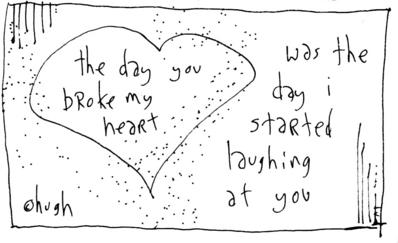 the day you
broke my
heart
was the
day i
started
laughing
at you
©hugh